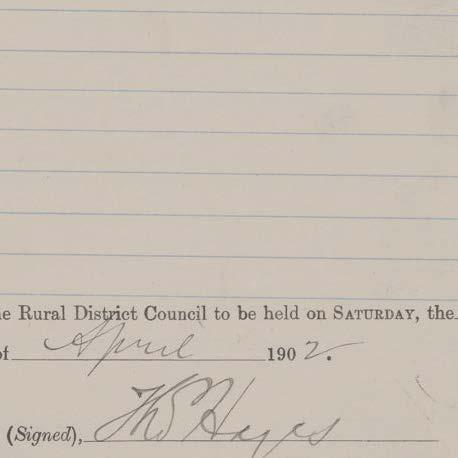 e Rural District Council to be held on SATURDAY, the
of April 1902.
(Signed), Thos Hayes